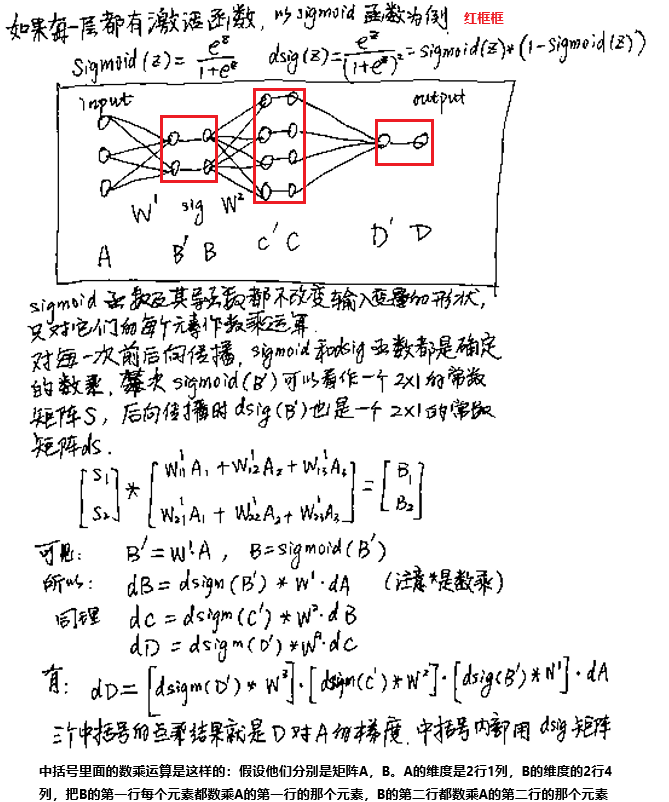 如果每一层都有激活函数,以sigmoid函数为例 红框框
Sigmoid(z)= e^z/(1+e^z) dsig(z)= e^z/(1+e^z)^2 = sigmoid(z)*(1-sigmoid(z))
input output
W^1 sig W^2
A B' B C' C D' D
sigmoid函数及其导函数都不改变输入变量的形状,
只对它们的每个元素作数乘运算.
对每一次前后向传播,sigmoid和dsig函数都是确定
的数乘. sigmoid(B')可以看作一个2x1的常数
矩阵S,后向传播时dsig(B')也是一个2x1的常数
矩阵ds.
[S1 S2] * [W^1_11 A1 + W^1_12 A2 + W^1_13 A3
W^1_21 A1 + W^1_22 A2 + W^1_23 A3] = [B1 B2]
可见: B'=W^1·A , B=sigmoid(B')
所以: dB=dsigm(B')*W^1·dA (注意*是数乘)
同理 dC=dsigm(C')*W^2·dB
dD=dsigm(D')*W^3·dC
有: dD=[dsigm(D')*W^3]·[dsigm(C')*W^2]·[dsig(B')*W^1]·dA
三个中括号的点乘结果就是D对A的梯度.中括号内部用dsig矩阵
中括号里面的数乘运算是这样的:假设他们分别是矩阵A,B。A的维度是2行1列,B的维度的2行4
列,把B的第一行每个元素都数乘A的第一行的那个元素,B的第二行都数乘A的第二行的那个元素